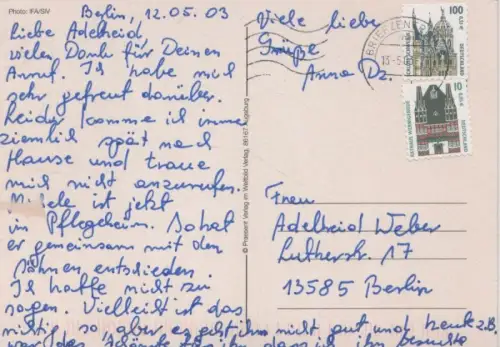 Photo: IFA/SIV
Berlin, 12.05.03
liebe Adelheid
vielen Dank für Deinen
Anruf. Ich habe mich
sehr gefreut darüber.
Leider komme ich immer
ziemlich spät nach
Hause und traue
mich nicht anzurufen.
ist jetzt
in Pflegeheim. So hat
er gemeinsam mit den
Söhnen entschieden.
Ich hatte nicht zu
sagen. Vielleicht ist das
richtig so aber es geht ihm nicht gut und heute z.B.
war das Schönste für ihn, dass ich ihn besuchte
Viele liebe
Grüße
Anna Dz.
© Praesent Verlag im Weltbild Verlag, 86167 Augsburg
BRIEFZEN
13-5.0
100
0,51 €
DEUTSCHLAND
10
0,05 €
DEUTSCHLAND
RATHAUS WERNIGERODE
Frau
Adelheid Weber
Lutherstr. 17
13585 Berlin